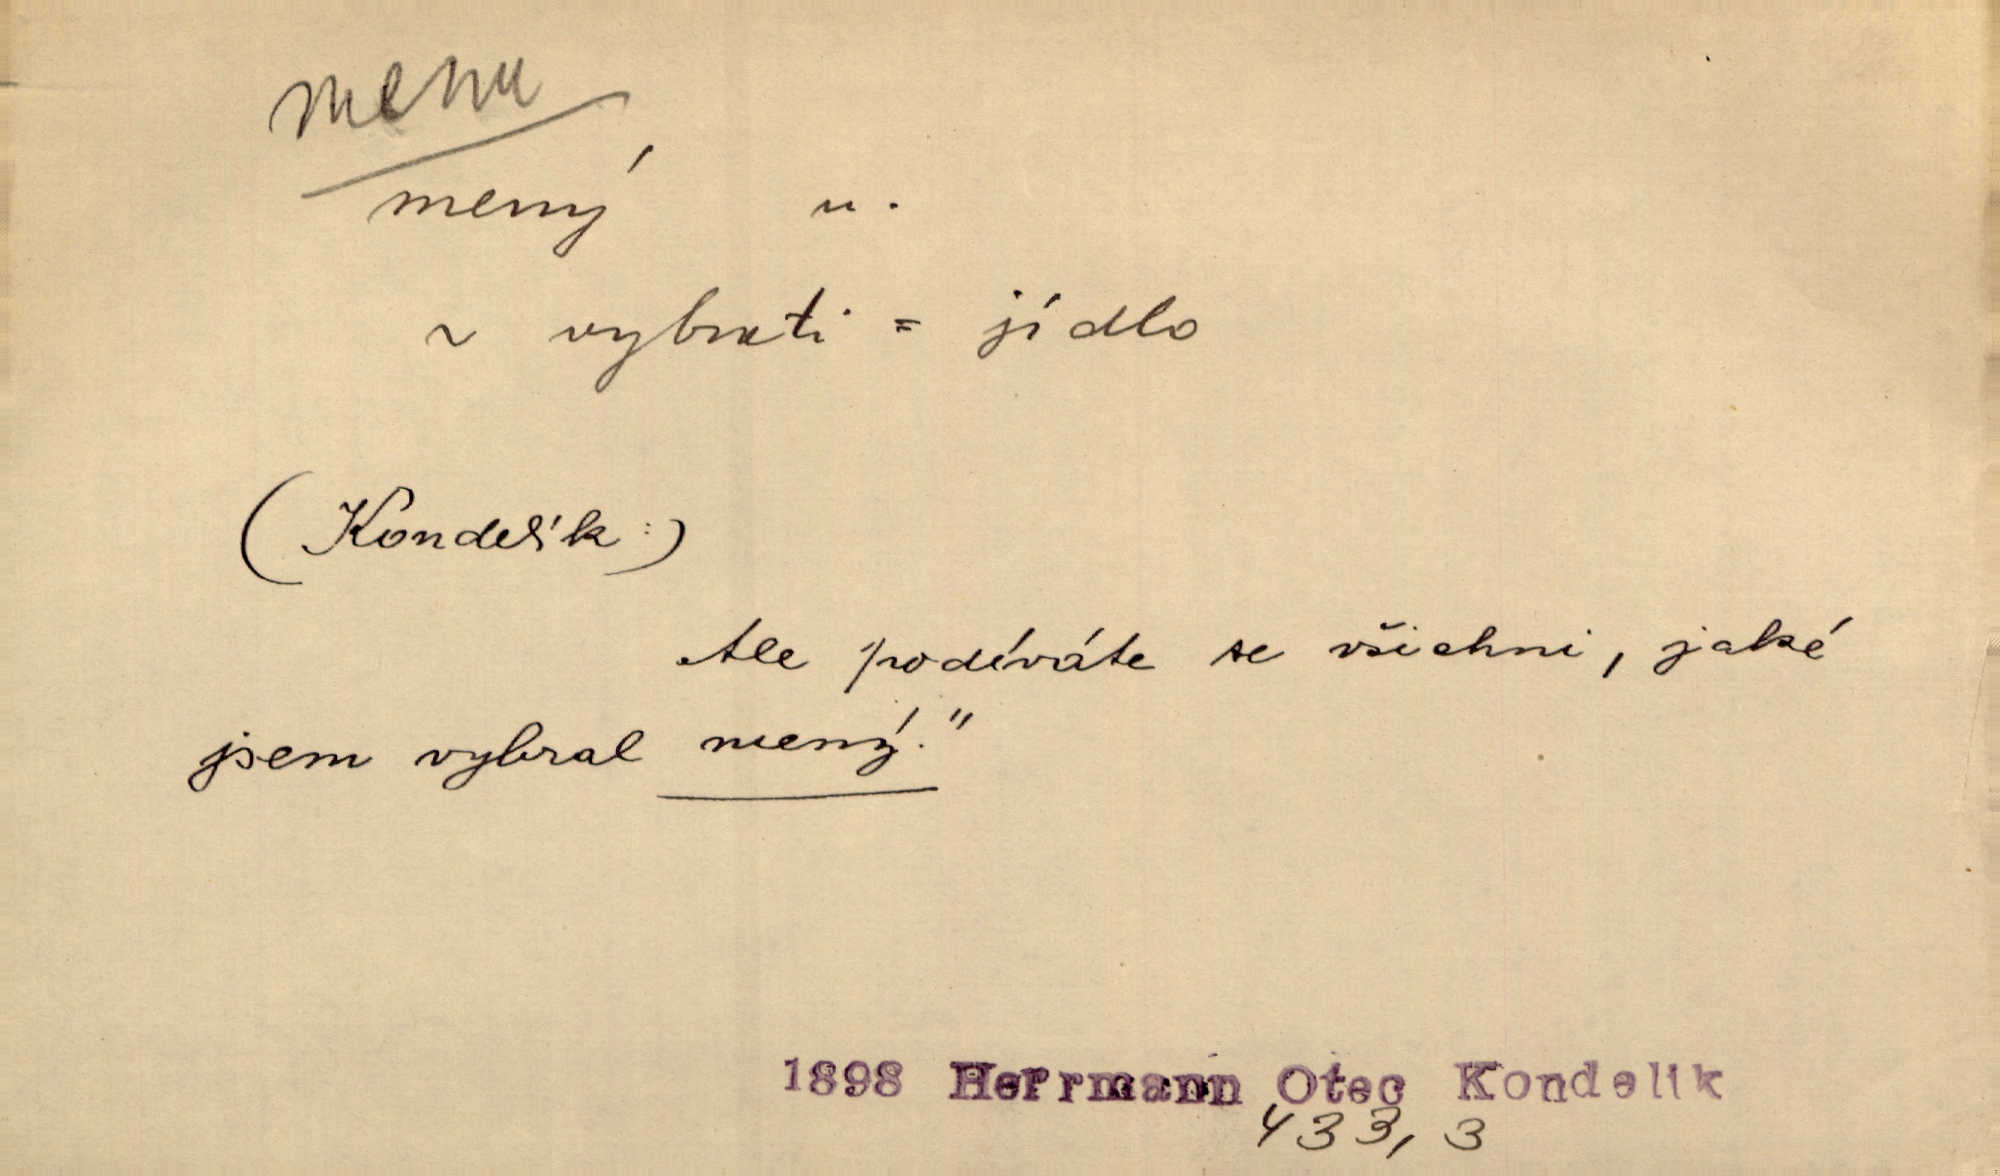 menu
mený n.
~ vybrati = jídlo
(Kondelík:)
Ale podíváte se všichni, jaké
jsem vybral mený."
1898 Herrmann Otec Kondelik
433, 3